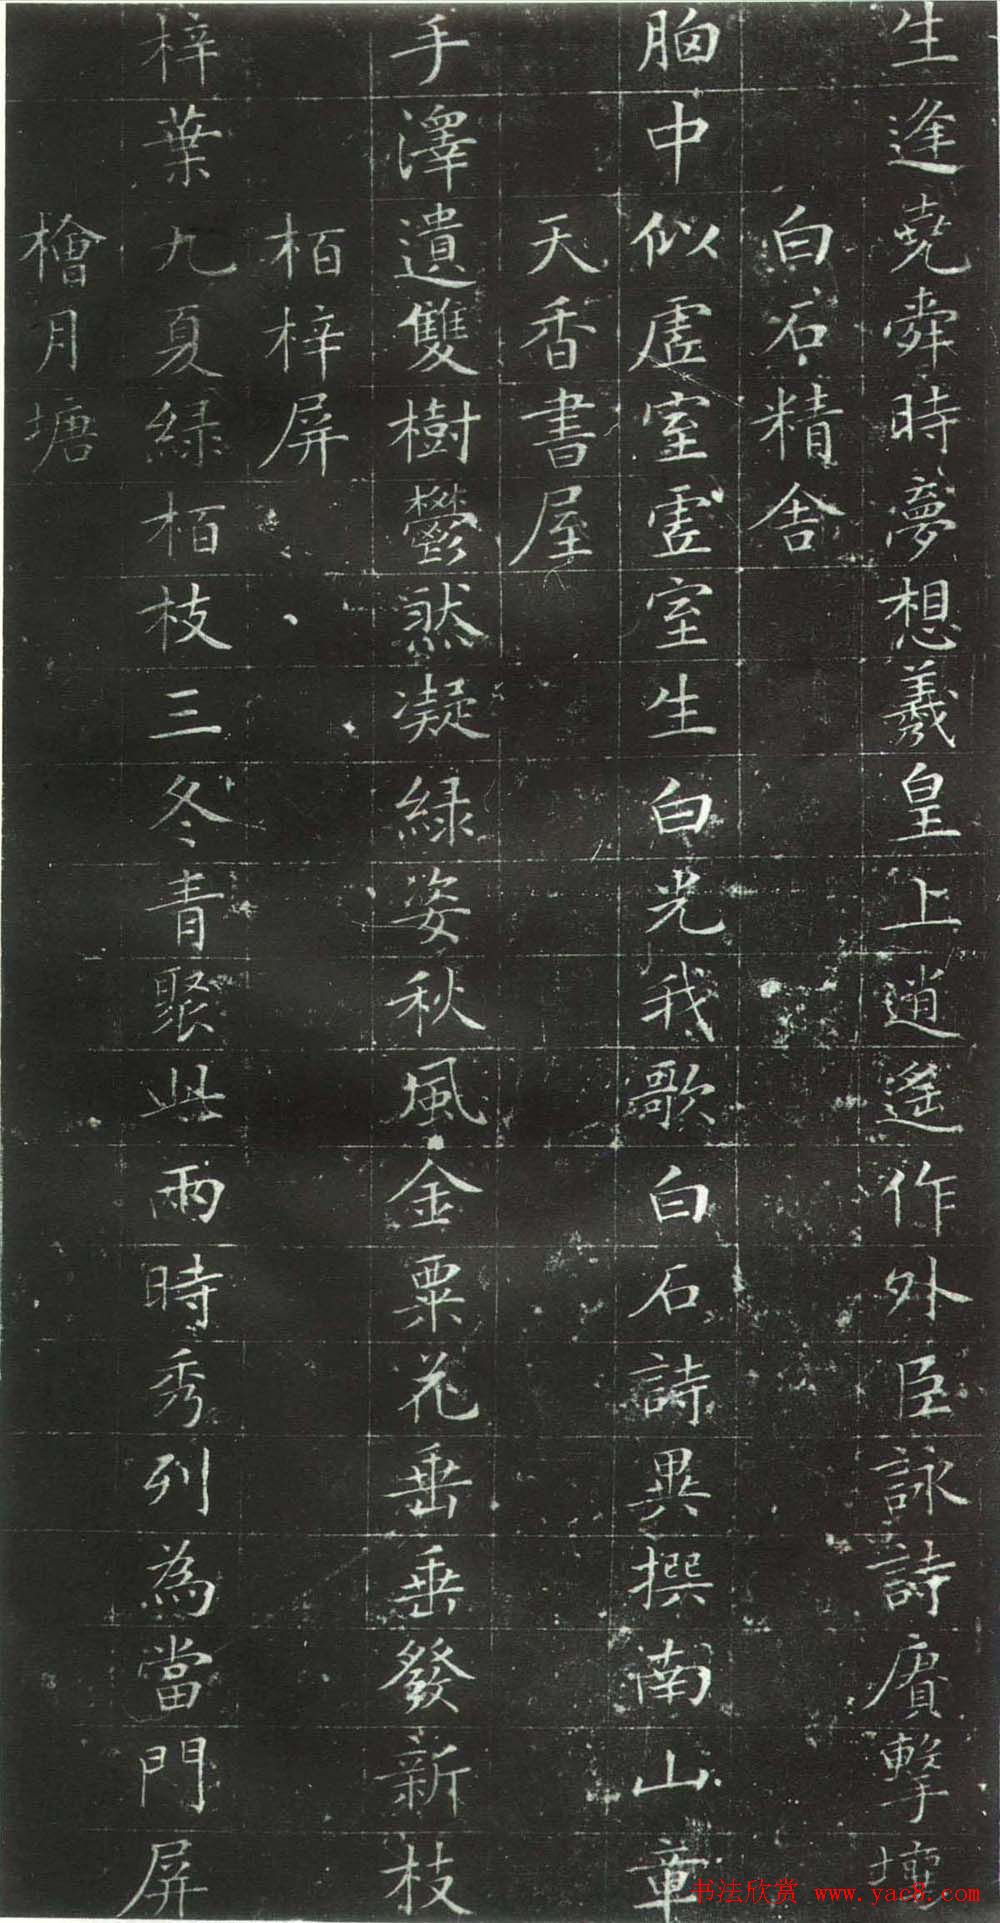 生逢堯舜時夢想羲皇上逍遙作外臣詠詩賡擊壤
白石精舍
胸中似虛室虛室生白光我歌白石詩異撰南山章
天香書屋
手澤遺雙樹鬱然凝綠姿秋風金粟花垂垂發新枝
栢梓屏
梓葉九夏綠栢枝三冬青聚此兩時秀列為當門屏
檜月塘
书法欣赏 www.yac8.com